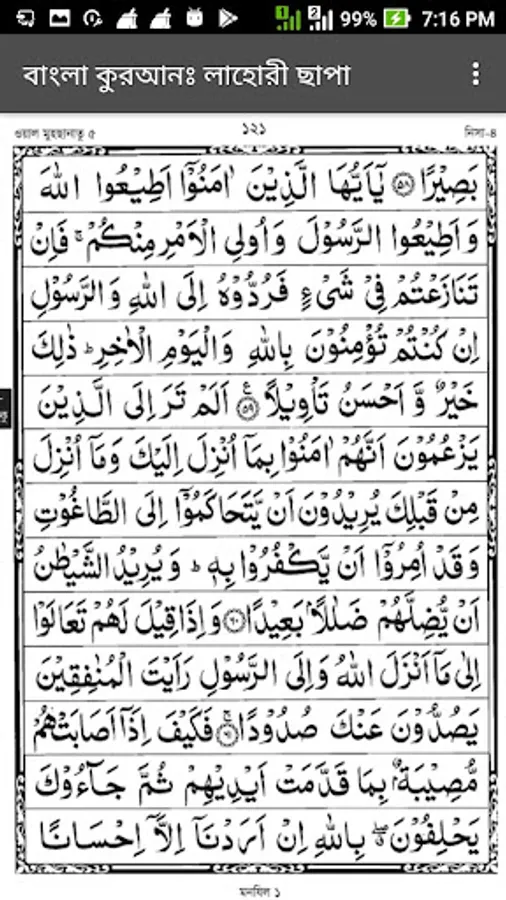 99% 7:16 PM
বাংলা কুরআনঃ লাহোরী ছাপা
ওয়াল মুহছানাতু ৫ ১২১ নিসা-৪
بَصِيْرًا ۝٥٨ يٰۤاَيُّهَا الَّذِيْنَ اٰمَنُوْۤا اَطِيْعُوا اللّٰهَ
وَاَطِيْعُوا الرَّسُوْلَ وَاُولِى الْاَمْرِ مِنْكُمْ ۚ فَاِنْ
تَنَازَعْتُمْ فِىْ شَىْءٍ فَرُدُّوْهُ اِلَى اللّٰهِ وَالرَّسُوْلِ
اِنْ كُنْتُمْ تُؤْمِنُوْنَ بِاللّٰهِ وَالْيَوْمِ الْاٰخِرِ ؕ ذٰلِكَ
خَيْرٌ وَّاَحْسَنُ تَاْوِيْلًا ۝٥٩ اَلَمْ تَرَ اِلَى الَّذِيْنَ
يَزْعُمُوْنَ اَنَّهُمْ اٰمَنُوْا بِمَاۤ اُنْزِلَ اِلَيْكَ وَمَاۤ اُنْزِلَ
مِنْ قَبْلِكَ يُرِيْدُوْنَ اَنْ يَّتَحَاكَمُوْۤا اِلَى الطَّاغُوْتِ
وَقَدْ اُمِرُوْۤا اَنْ يَّكْفُرُوْا بِهٖ ؕ وَيُرِيْدُ الشَّيْطٰنُ
اَنْ يُّضِلَّهُمْ ضَلٰلًاۢ بَعِيْدًا ۝٦٠ وَاِذَا قِيْلَ لَهُمْ تَعَالَوْا
اِلٰى مَاۤ اَنْزَلَ اللّٰهُ وَاِلَى الرَّسُوْلِ رَاَيْتَ الْمُنٰفِقِيْنَ
يَصُدُّوْنَ عَنْكَ صُدُوْدًا ۝٦١ فَكَيْفَ اِذَاۤ اَصَابَتْهُمْ
مُّصِيْبَةٌۢ بِمَا قَدَّمَتْ اَيْدِيْهِمْ ثُمَّ جَآءُوْكَ
يَحْلِفُوْنَ ۖ بِاللّٰهِ اِنْ اَرَدْنَاۤ اِلَّاۤ اِحْسَانًا
মনযিল ১